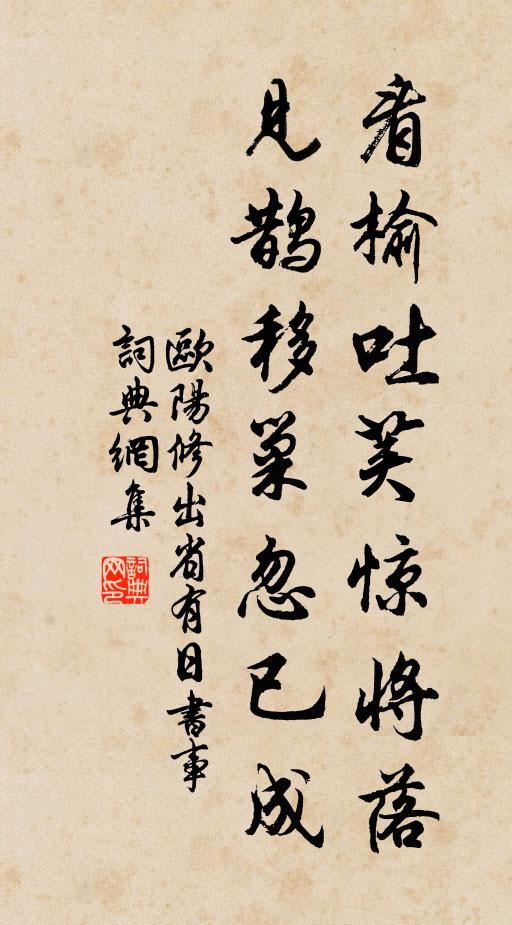 看榆吐荚惊将落
见鹊移巢忽已成
歐陽修出省有日書事
詞典網集
詞典网印